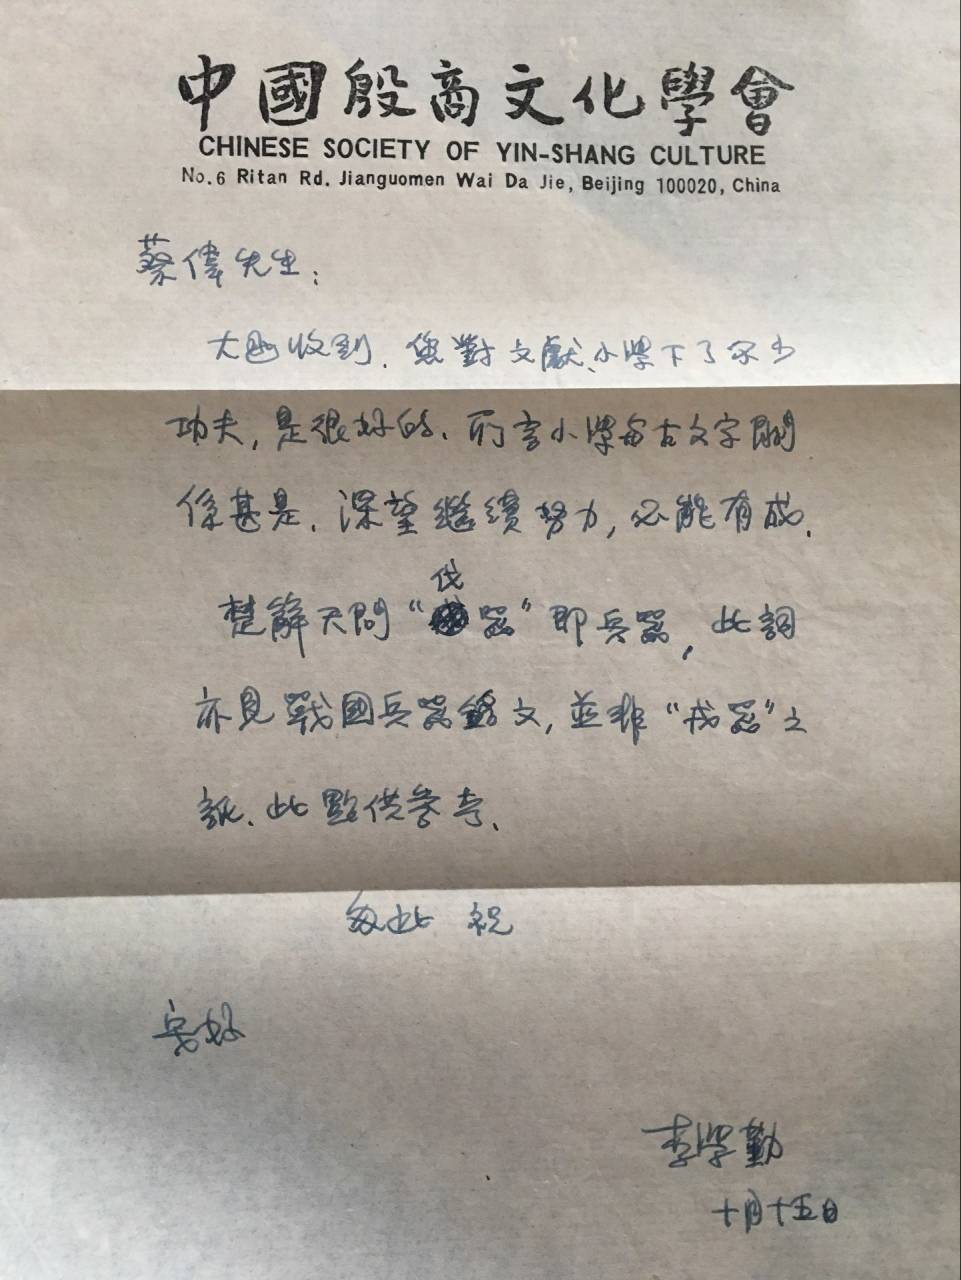 中國殷商文化學會
CHINESE SOCIETY OF YIN-SHANG CULTURE
No.6 Ritan Rd. Jianguomen Wai Da Jie, Beijing 100020, China
蔡偉先生：
大函收到．您對文獻、小學下了不少
功夫，是很好的．所言小學與古文字關
係甚是．深望繼續努力，必能有成．
楚辭天問“伐器”即兵器，此詞
亦見戰國兵器銘文，並非“戎器”之
訛．此點供參考．
匆此 祝
安好
李學勤
十月十五日